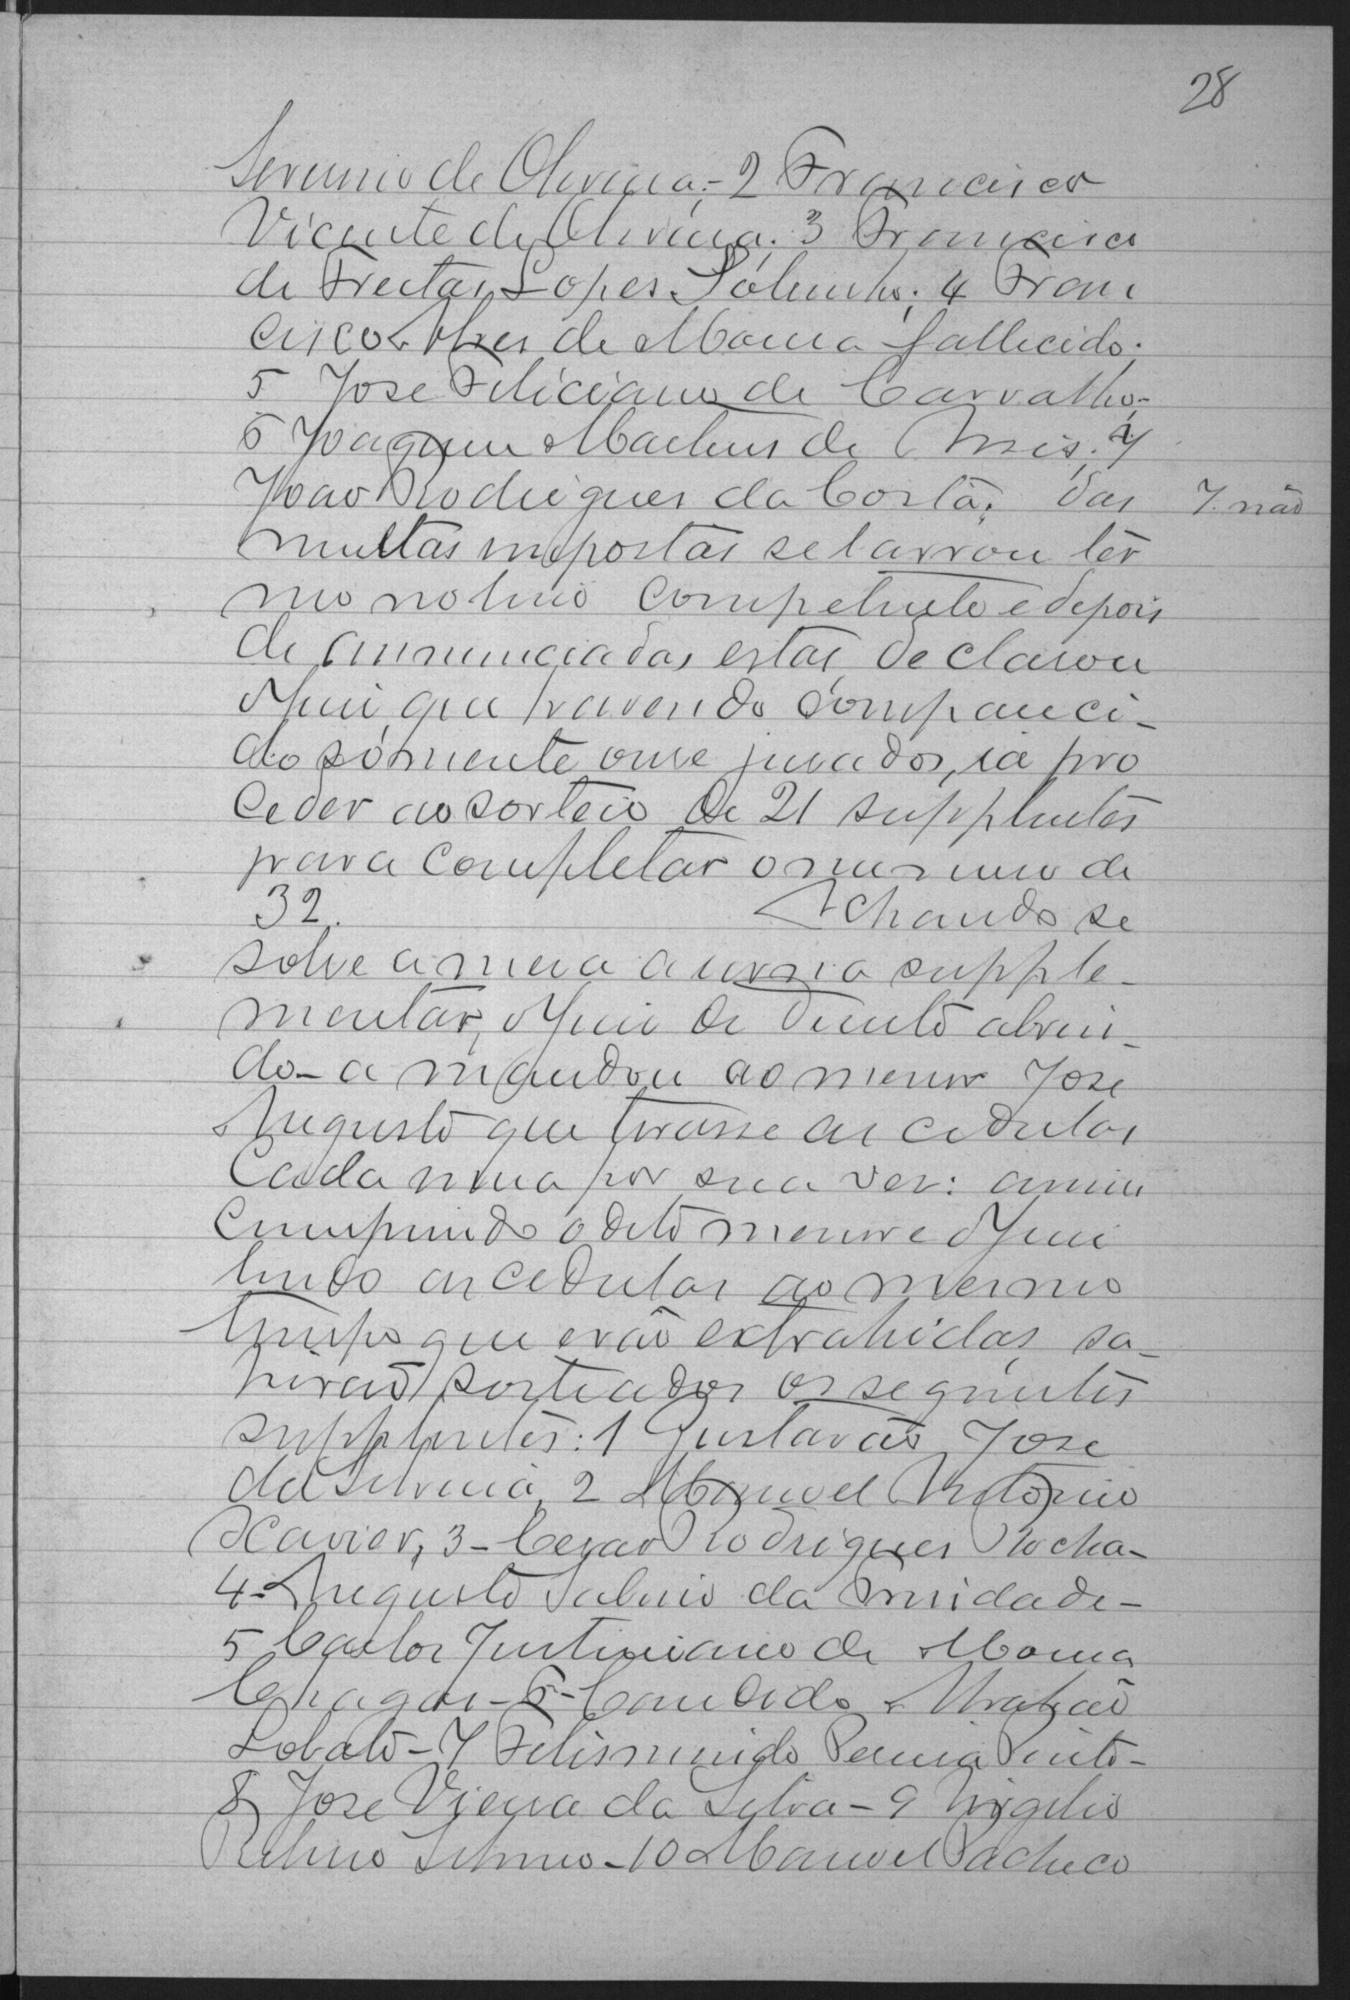 28
Severino de Oliveira; - 2 Francisco
Vicente de Oliveira; 3 Francisco
de Freitas Lopes Sobrinho; 4 Fran
cisco Alves de Moura fallecido;
5 José Feliciano de Carvalho;
6 Joaquim Martins de Assis; 7
João Rodrigues da Costa; das 7. não
multas impostas se lavrou ter
mo no livro competente e depois
de annunciadas estas, declarou
o Juiz que havendo compareci-
do sómente onze jurados, ia pro
ceder ao sorteio de 21 supplentes
para completar o numero de
32. Achando se
sobre a meza a urna supple-
mentar, o Juiz de Direito abrin-
do-a mandou ao menor José
Augusto que tirasse as cedulas
cada uma por sua vez: assim
cumprindo o dito menor e o Juiz
lendo as cedulas ao mesmo
tempo que erão extrahidas, sa-
hirão sorteados os seguintes
supplentes: 1 Gustavão José
da Silveira, 2 Manoel Antonio
Xavier, 3 - Cezar Rodrigues Rocha -
4 - Augusto Sabino da Trindade -
5 Carlos Justiniano de Moura
Chagas - 6 - Candido Abrahão
Lobato - 7 Felisminido Pereira Pinto -
8 José Vieira da Silva - 9 Virgilio
Silvino - 10 Manoel Pacheco